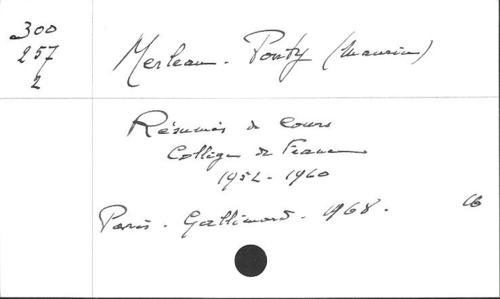 300
257
2
Merleau-Ponty (Maurice)
Résumés de Cours
Collège de France
1952-1960
Paris. Gallimard. 1968.